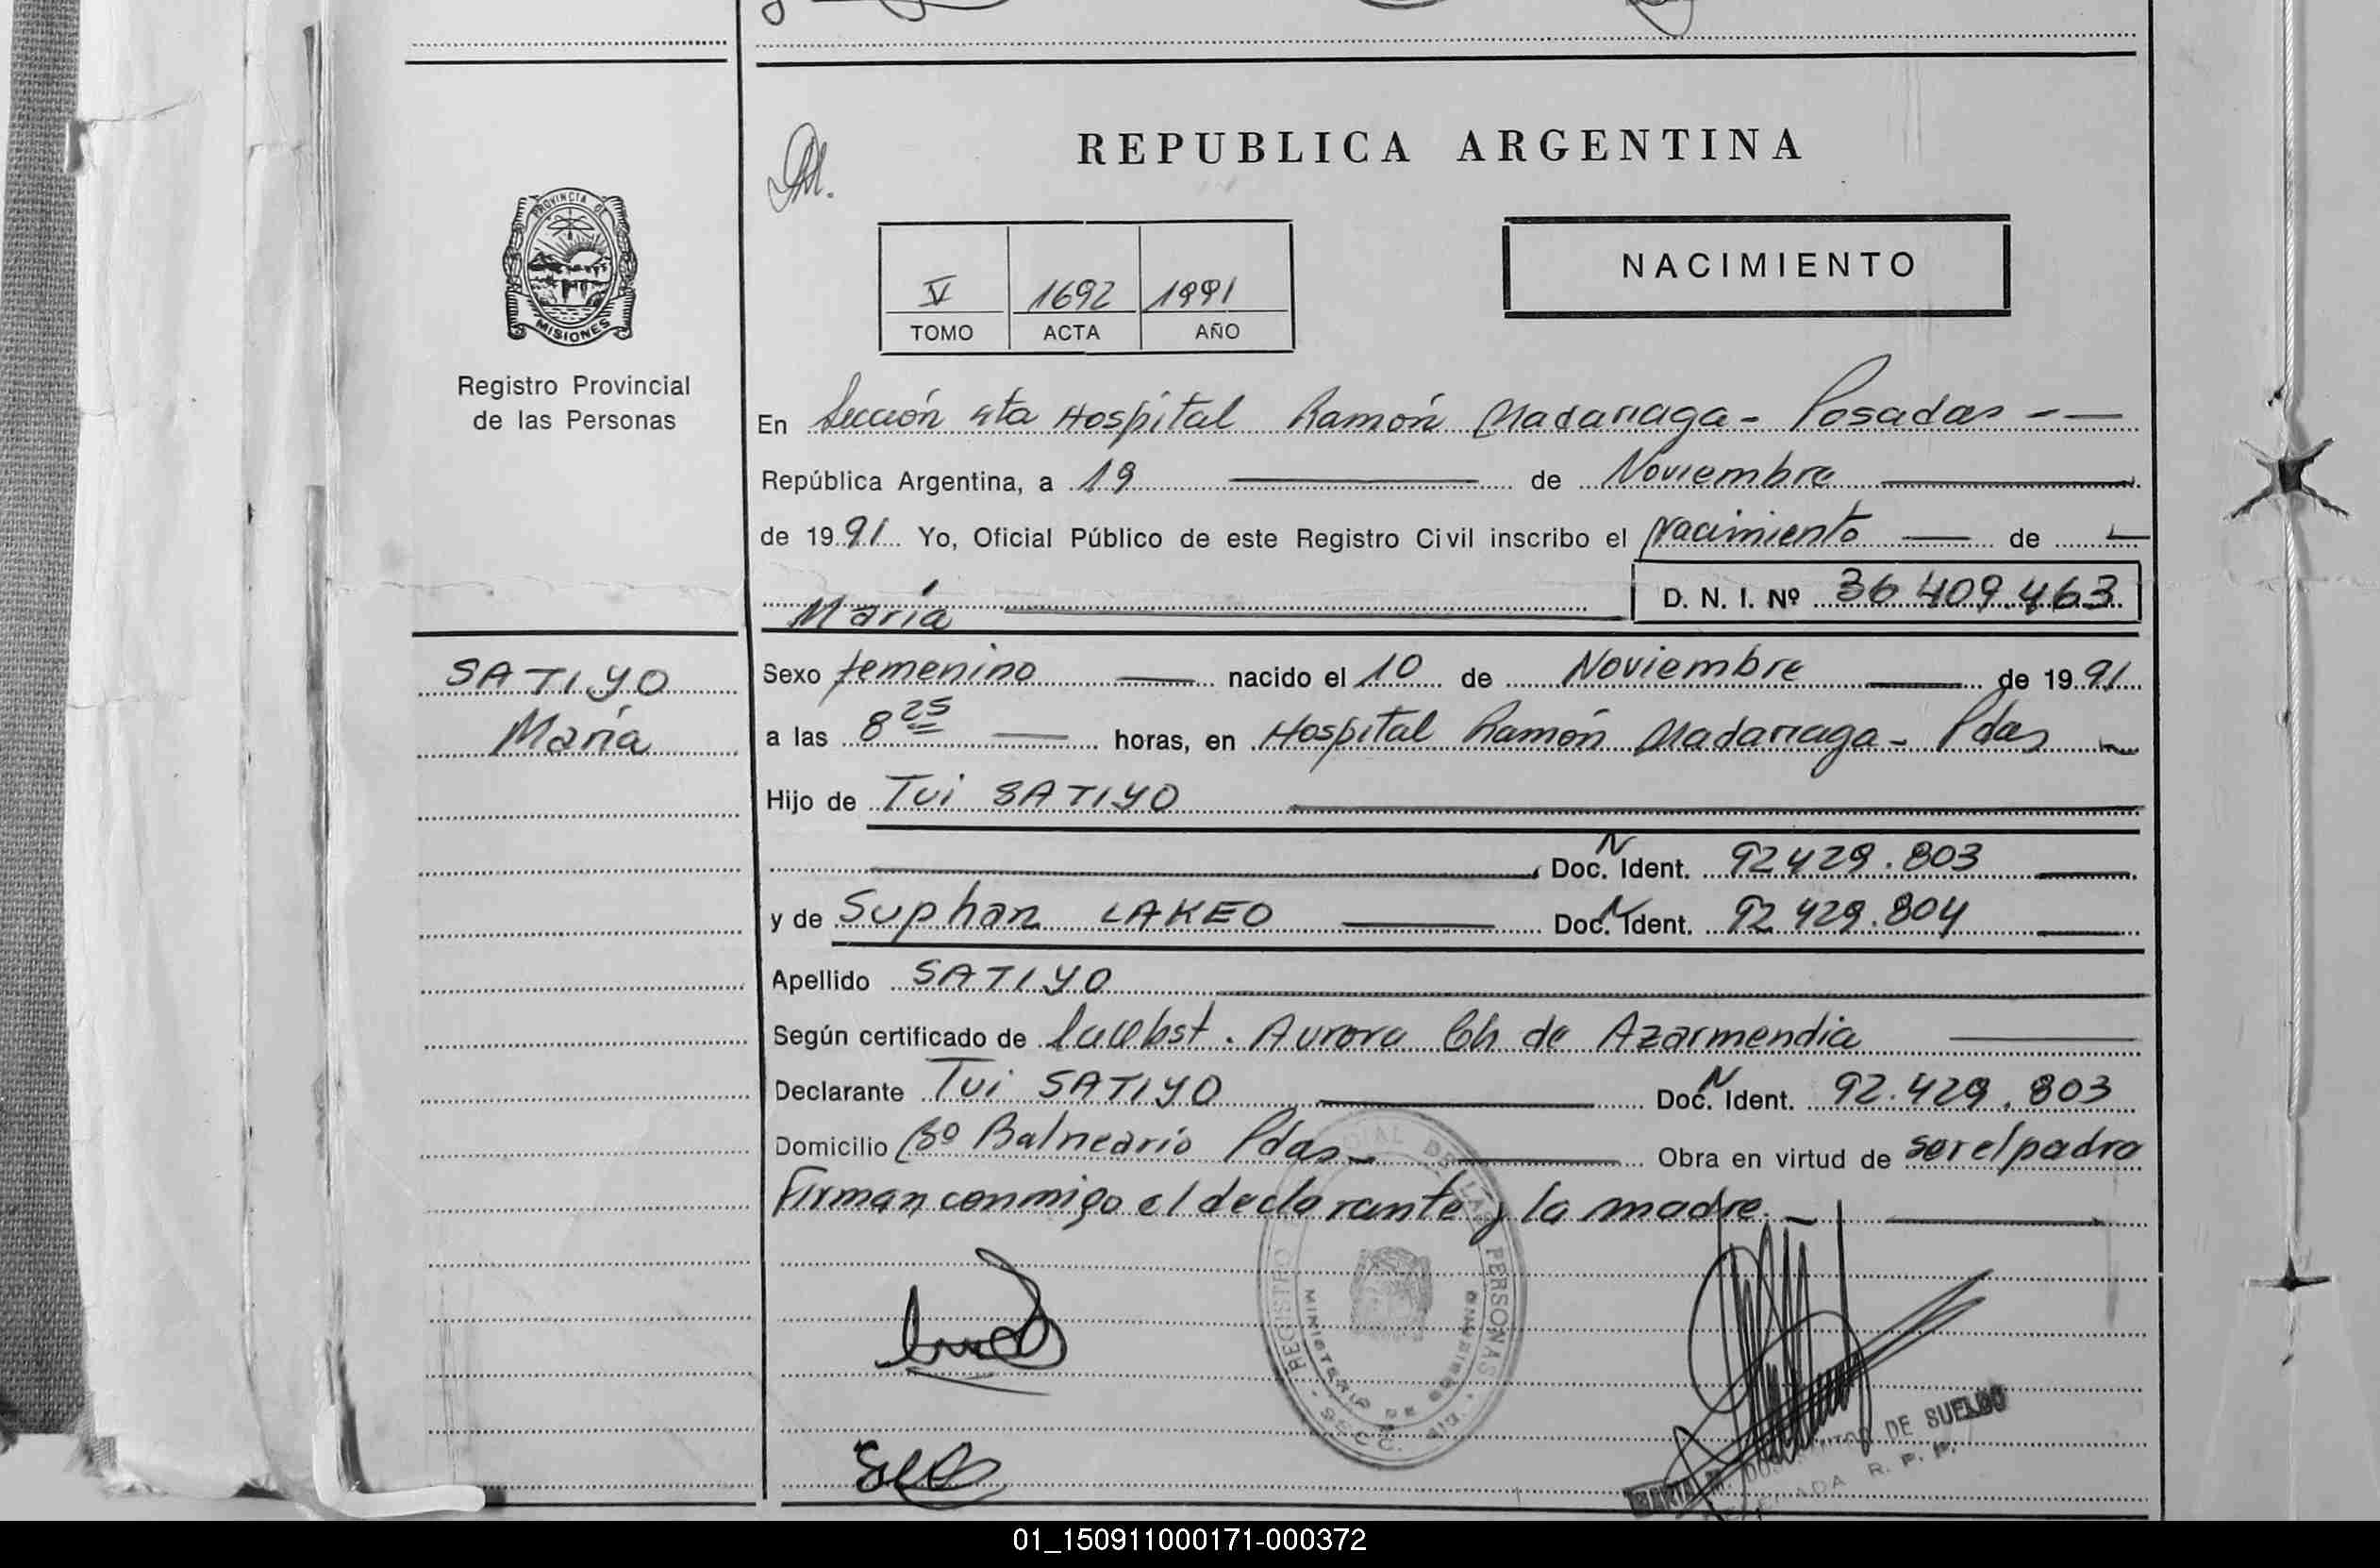 REPUBLICA ARGENTINA
PROVINCIA DE
MISIONES
Registro Provincial
de las Personas
NACIMIENTO
V 1692 1991
TOMO ACTA AÑO
En Sección 4ta Hospital Ramón Madariaga - Posadas - —
República Argentina, a 19 — de Noviembre —
de 1991 Yo, Oficial Público de este Registro Civil inscribo el Nacimiento — de —
María — D. N. I. Nº 36 409.463
SATIYO
María
Sexo femenino — nacido el 10 de Noviembre — de 1991
a las 8 25 — horas, en Hospital Ramón Madariaga - Pdas
Hijo de Tui SATIYO —
— Doc. N Ident. 92429.803 —
y de Suphan LAKEO — Doc. N Ident. 92 429.804 —
Apellido SATIYO —
Según certificado de Aurora Ch de Azarmendia —
Declarante Tui SATIYO — Doc. N Ident. 92.429.803
Domicilio Bº Balneario Pdas — Obra en virtud de ser el padre
Firman conmigo el declarante y la madre. —
REGISTRO DE LAS PERSONAS
MINISTERIO DE GOBIERNO
DE SUELDO
R. P. P.
01_150911000171-000372